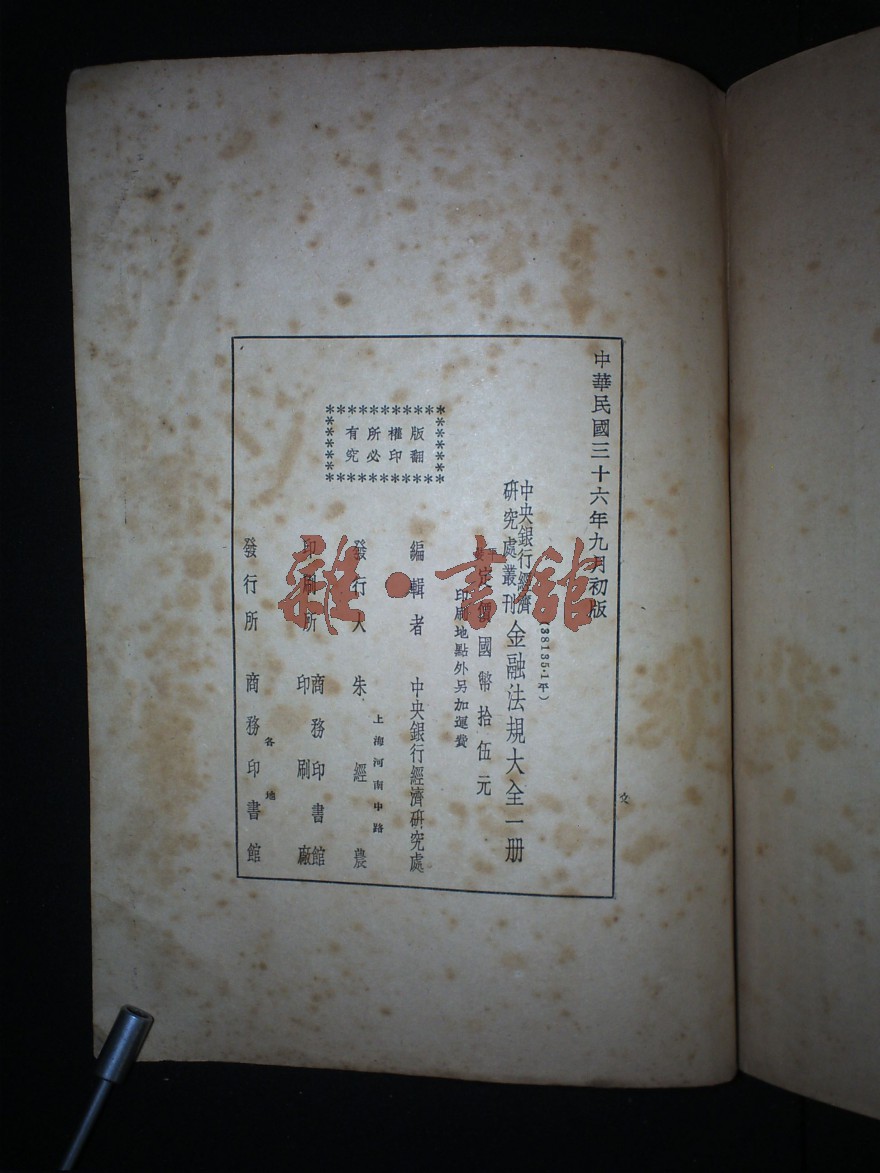 中華民國三十六年九月初版
(38135·1平)
中央銀行經濟
研究處叢刊
金融法規大全一册
定價國幣拾伍元
印刷地點外另加運費
版權所有
翻印必究
編輯者 中央銀行經濟研究處
上海河南中路
發行人 朱經農
印刷所 商務印書館
印刷廠
各地
發行所 商務印書館
雜·書館